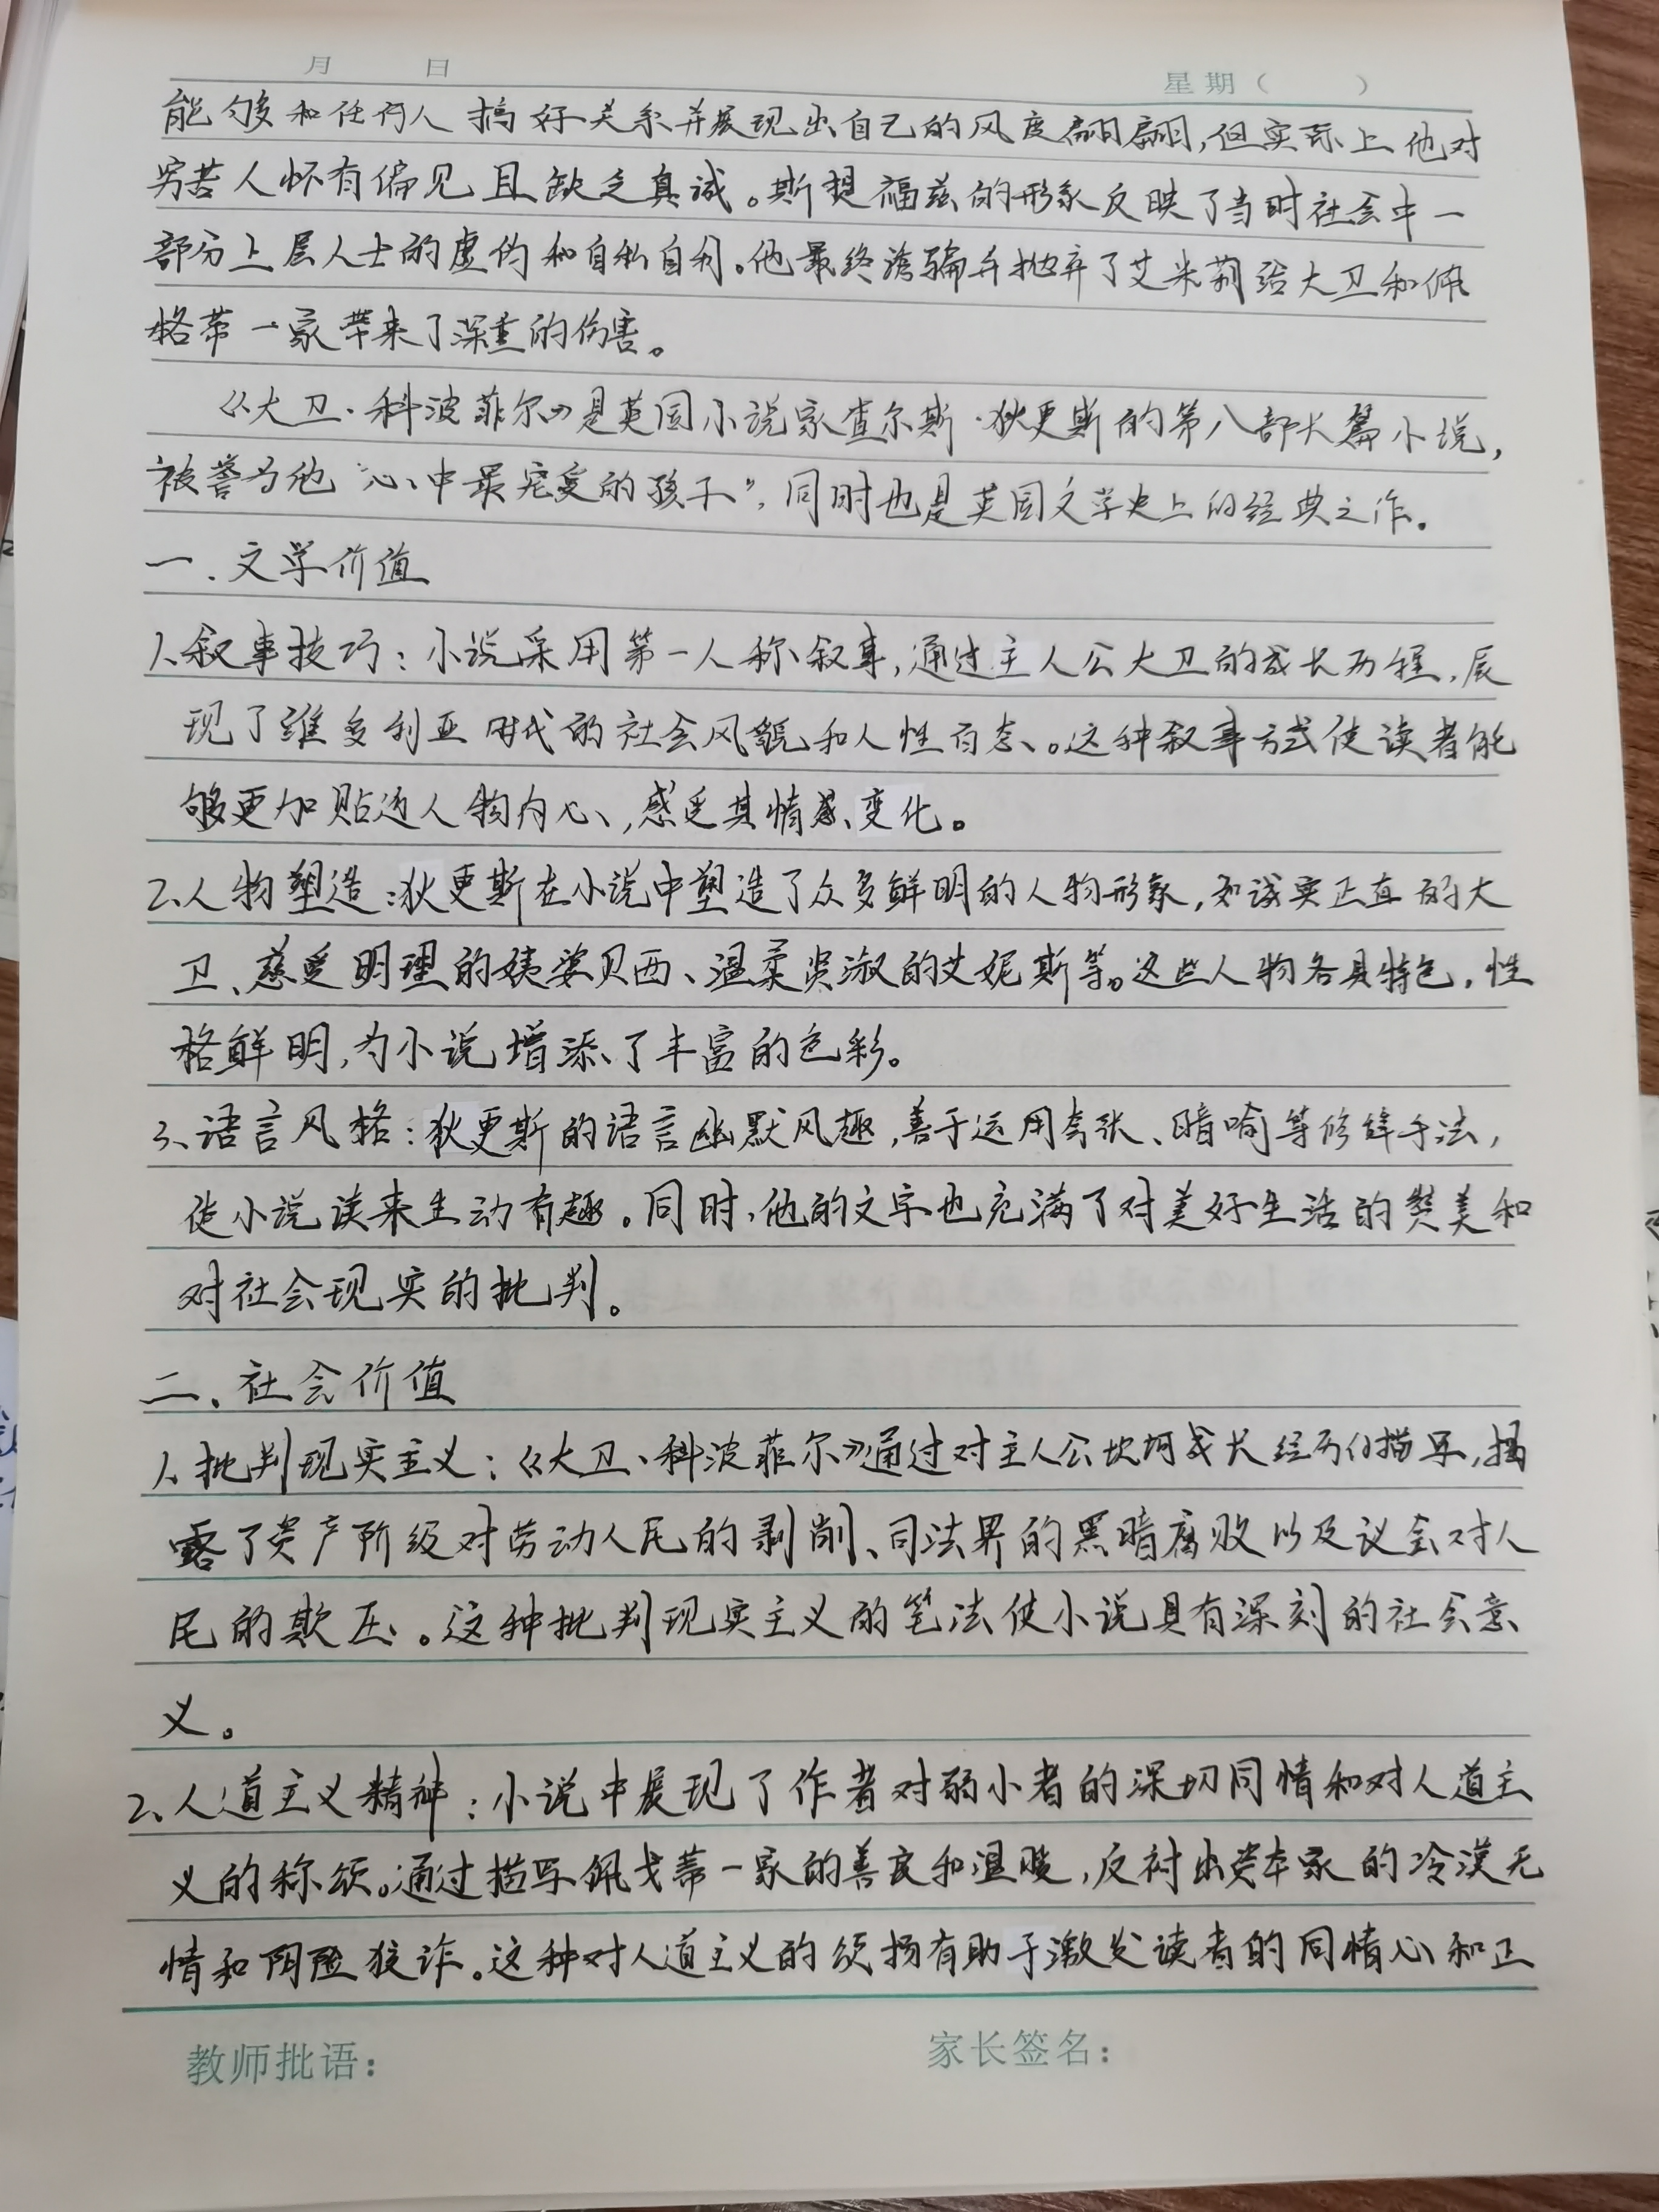 月 日 星期（ ）
能够和任何人搞好关系并展现出自己的风度翩翩,但实际上他对
穷苦人怀有偏见且缺乏真诚。斯提福兹的形象反映了当时社会中一
部分上层人士的虚伪和自私自利。他最终诱骗并抛弃了艾米莉给大卫和佩
格蒂一家带来了深重的伤害。
《大卫·科波菲尔》是英国小说家查尔斯·狄更斯的第八部长篇小说,
被誉为他“心中最宠爱的孩子”,同时也是英国文学史上的经典之作.
一.文学价值
1、叙事技巧:小说采用第一人称叙事,通过主人公大卫的成长历程,展
现了维多利亚时代的社会风貌和人性百态。这种叙事方式使读者能
够更加贴近人物内心,感受其情感变化。
2、人物塑造:狄更斯在小说中塑造了众多鲜明的人物形象,如诚实正直的大
卫、慈爱明理的姨婆贝西、温柔贤淑的艾妮斯等。这些人物各具特色,性
格鲜明,为小说增添了丰富的色彩。
3、语言风格:狄更斯的语言幽默风趣,善于运用夸张、暗喻等修辞手法,
使小说读来生动有趣。同时,他的文字也充满了对美好生活的赞美和
对社会现实的批判。
二、社会价值
1、批判现实主义:《大卫、科波菲尔》通过对主人公坎坷成长经历的描写,揭
露了资产阶级对劳动人民的剥削、司法界的黑暗腐败以及议会对人
民的欺压。这种批判现实主义的笔法使小说具有深刻的社会意
义。
2、人道主义精神:小说中展现了作者对弱小者的深切同情和对人道主
义的称颂。通过描写佩戈蒂一家的善良和温暖,反衬出资本家的冷漠无
情和阴险狡诈。这种对人道主义的颂扬有助于激发读者的同情心和正
教师批语: 家长签名: